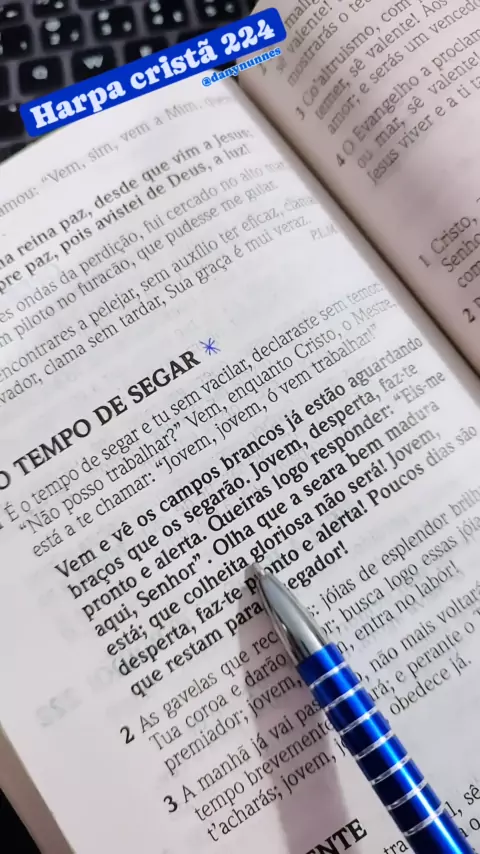 Harpa cristã 224
@danynunnes
amou: "Vem, sim, vem a Mim.
na reina paz, desde que vim a Jesus;
pre paz, pois avistei de Deus, a luz!
es ondas da perdição, fui cercado no alto mar
m piloto no furacão, que pudesse me guiar.
encontrares a pelejar, sem auxílio ter eficaz, clama
vador, clama sem tardar, Sua graça é mui veraz.
P.L.M.
O TEMPO DE SEGAR *
É o tempo de segar e tu sem vacilar, declaraste sem temor:
"Não posso trabalhar?" Vem, enquanto Cristo, o Mestre
está a te chamar: "Jovem, jovem, ó vem trabalhar!"
Vem e vê os campos brancos já estão aguardando
braços que os segarão. Jovem, desperta, faz-te
pronto e alerta. Queiras logo responder: "Eis-me
aqui, Senhor". Olha que a seara bem madura
está; que colheita gloriosa não será! Jovem,
desperta, faz-te pronto e alerta! Poucos dias são
que restam para segador!
2 As gavelas que rec jóias de esplendor brilh
Tua coroa e darão busca logo essas jói
premiador; jovem, entra no labor!
3 A manhã já vai pas não mais voltará
tempo brevemente ará; e perante o
t'acharás; jovem, j obedece já.
ENTE
mostrarás o te
3 Co altruísmo, com
temer, sê valente! Aos
amor, e serás um vencedo
4 O Evangelho a proclam
ou mar, sê valente!
Jesus viver e a ti ta
1 Cristo,
Senho
2